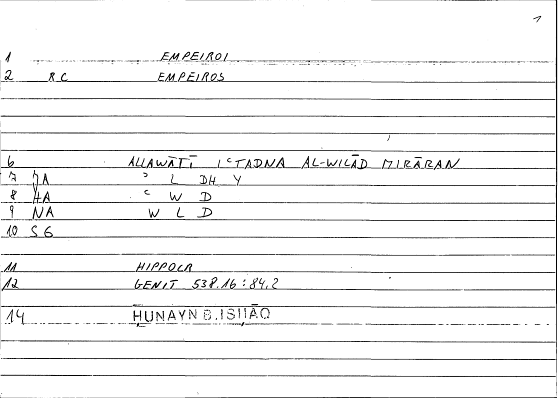 1
1 EMPEIROI
2 RC EMPEIROS
6 ALLAWĀTĪ IʿTADNA AL-WILĀD MIRĀRAN
7 JA ʾ L DH Y
8 HA ʿ W D
9 NA W L D
10 SG
11 HIPPOCR
12 GENIT 538.16:84,2
14 ḤUNAYN B.ISḤĀQ